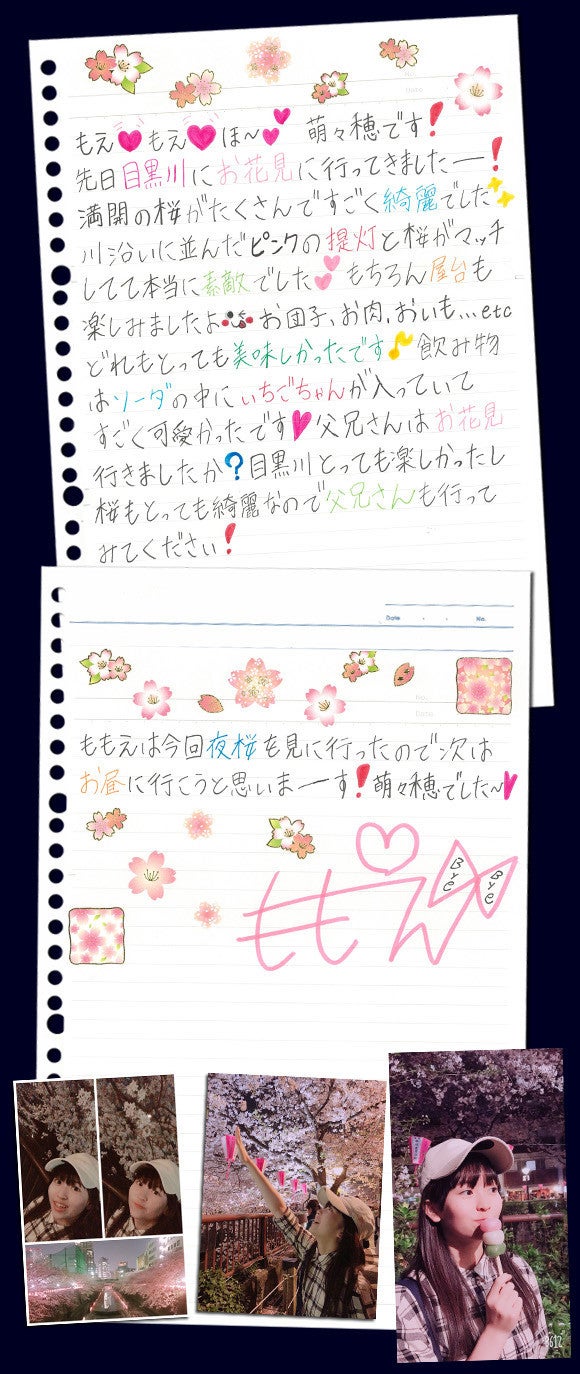 もえもえほ〜 萌々穂です！
先日目黒川にお花見に行ってきましたー！
満開の桜がたくさんですごく綺麗でした
川沿いに並んだピンクの提灯と桜がマッチ
してて本当に素敵でした もちろん屋台も
楽しみましたよ お団子、お肉、おいも...etc
どれもとっても美味しかったです♪飲み物
はソーダの中にいちごちゃんが入っていて
すごく可愛かったです 父兄さんはお花見
行きましたか？目黒川とっても楽しかったし
桜もとっても綺麗なので父兄さんも行って
みてください！
Date ・ ・ No.
ももえは今回夜桜を見に行ったので次は
お昼に行こうと思いまーす！萌々穂でした〜
ももえ
Bye
Bye